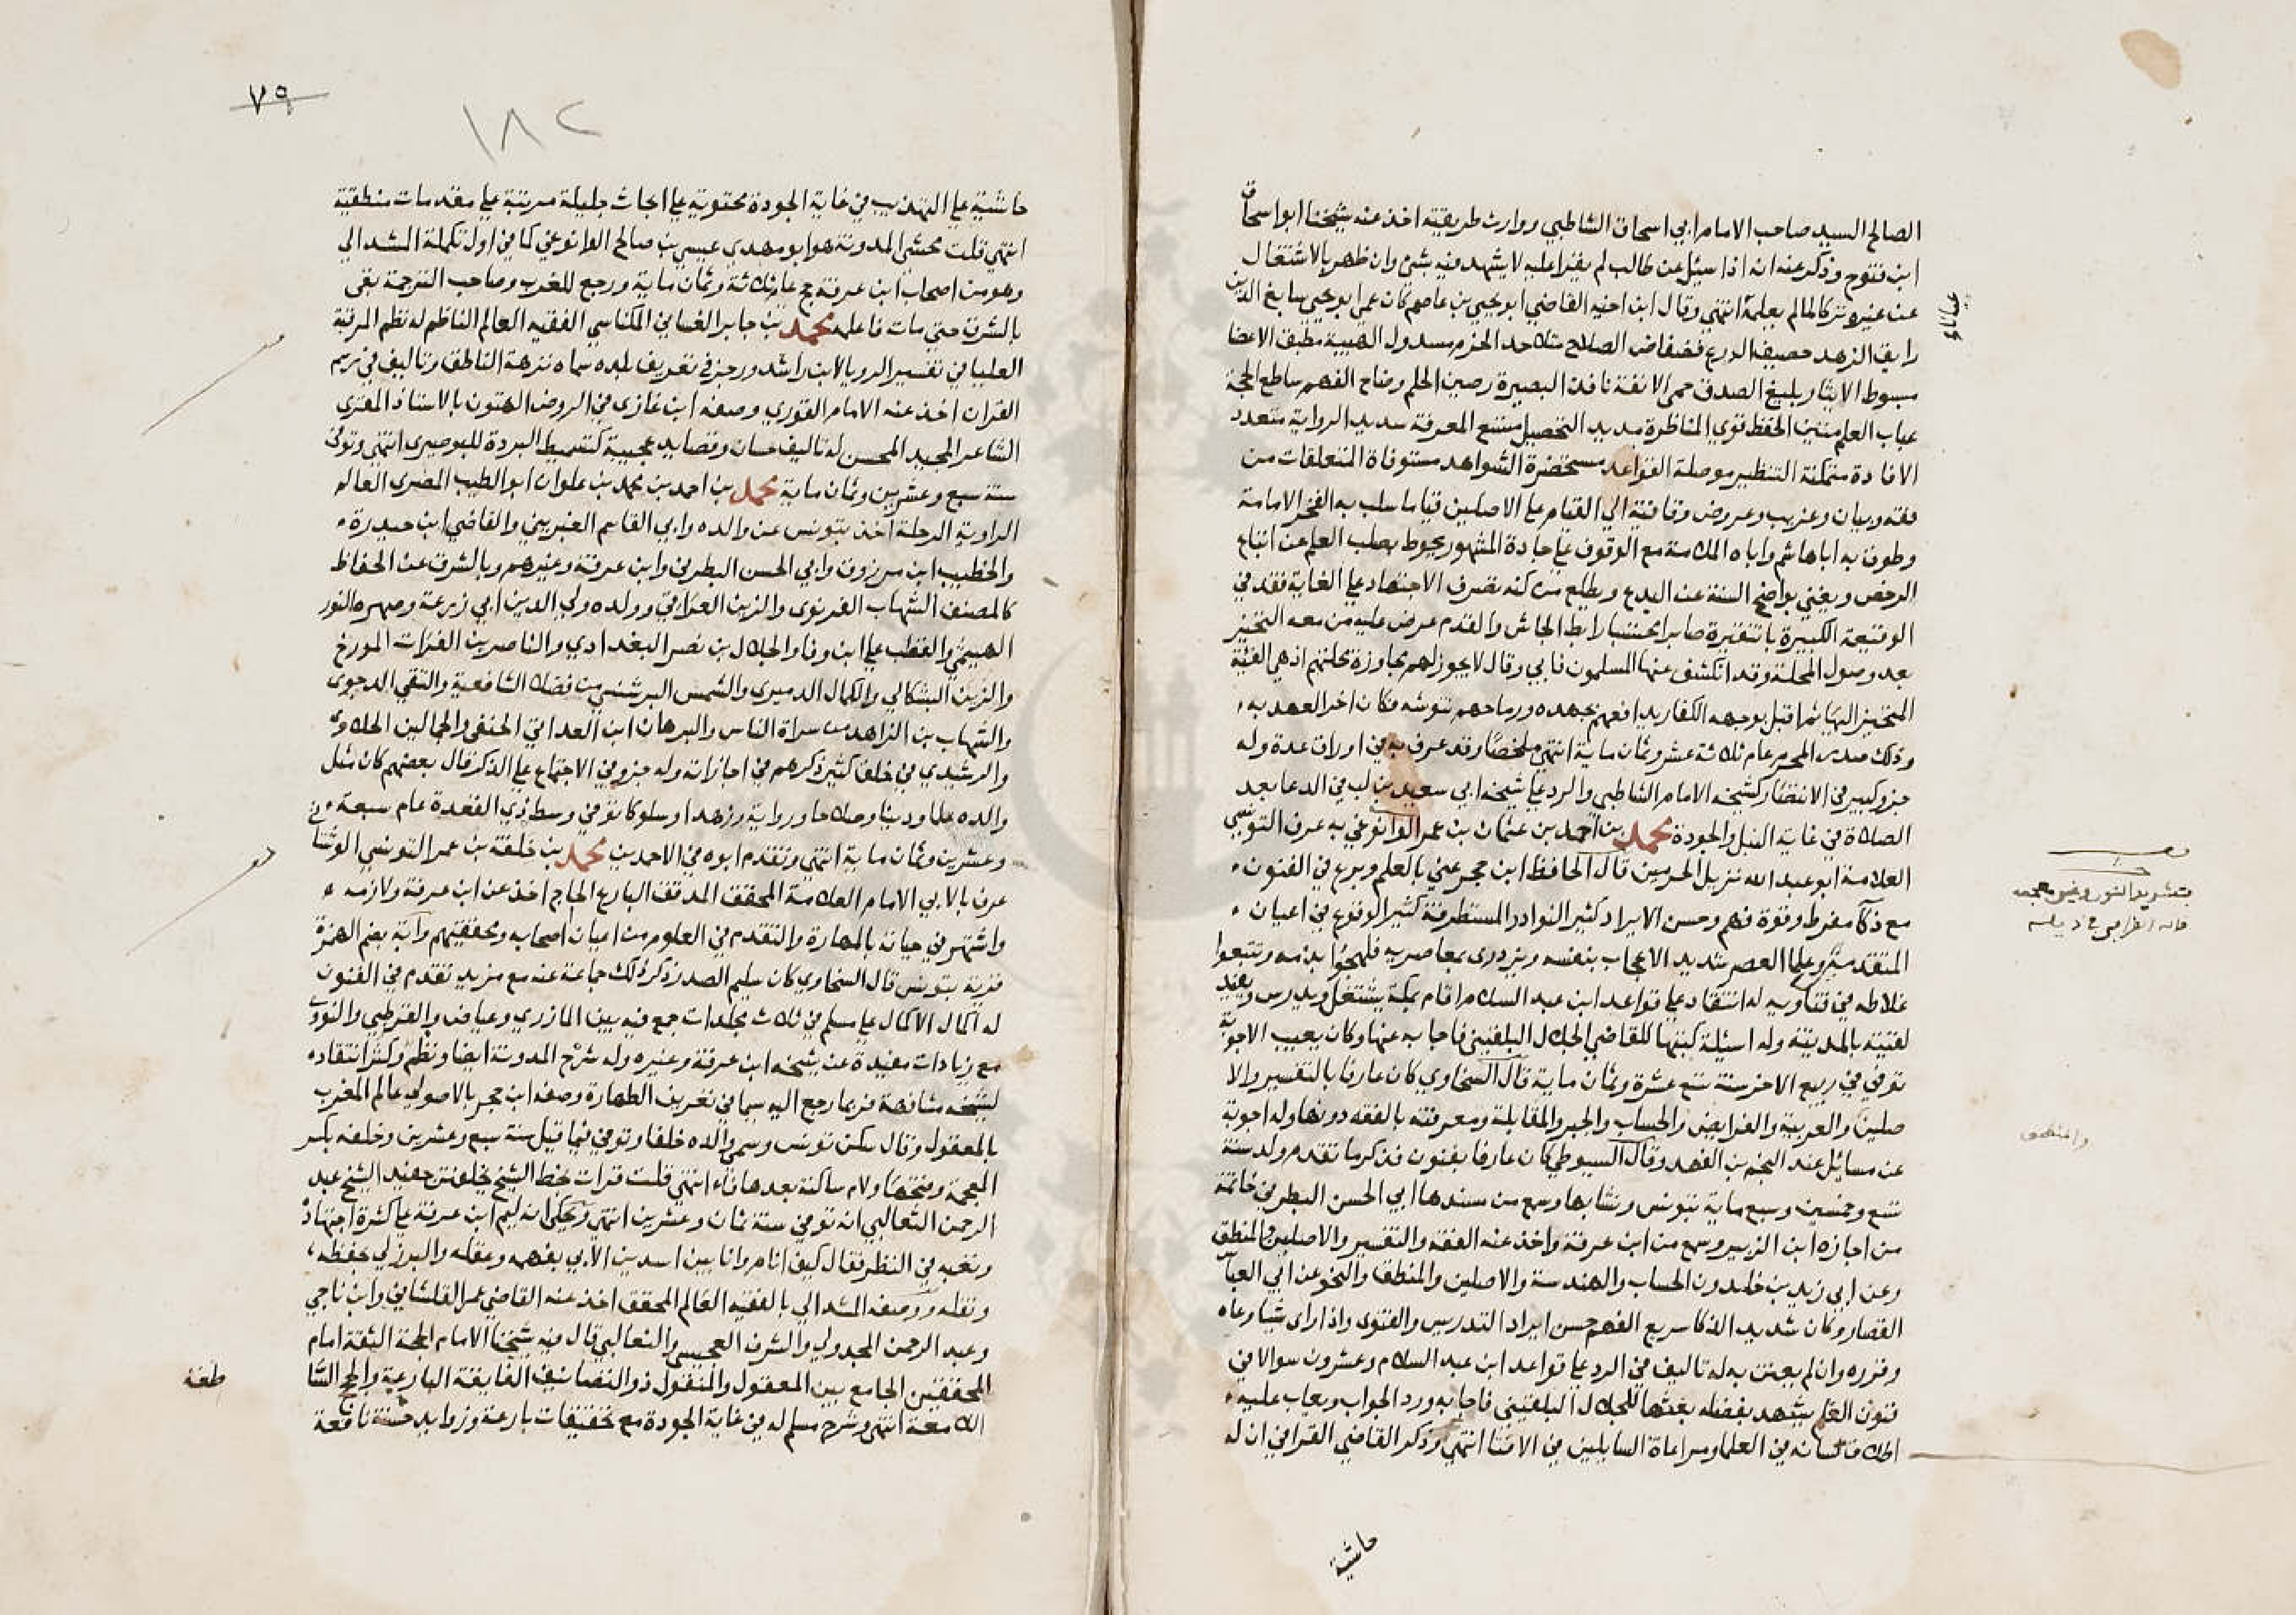 الصالح السيد صاحب الامام ابي اسحاق الشاطبي ووارث طريقته اخذ عنه شيخنا ابو اسحاق
ابن فتوح وذكر عنه انه اذا سئل عن طالب لم يقرا عليه لا يشهد فيه بشئ وان ظهر بالاشتغال
عن غيره تركا لما لم يعلمه انتهي وقال ابن اخيه القاضي ابو يحيي بن عاصم كان عمي ابو يحيي سابغ الدين
رايق الزهد حصيف الورع فضفاض الصلاح متلاحد الحزم مسدول الهيبة مطبق الاعضا
مبسوط الايثار بليغ الصدق حمي الانفة نافذ البصيرة رصين الحلم وضاح الفهم ساطع الحجة
عباب العلم متين الحفظ قوي المناظرة مديد التحصيل متسع المعرفة سديد الرواية متعدد
الافادة متمكنة التنظير موصلة القواعد مستحضرة الشواهد مستوفاة المتعلقات من
فقه وبيان وغريب وعروض وقافية الي القيام علي الاصلين قياما سلب به الفخر الامامة
وطوق به اباهاشم واباه الملامة مع الوقوف علي جادة المشهور يحوط بصلب العلم عن اتباع
الرخص ويغني بواضح السنة عن البدع ويطلع من كنه تصرف الاجتهاد علي الغاية فقد في
الوقيعة الكبيرة بانتقيرة صابرا محتسبا رابط الجاش والقدم عرض عليه من معه التحيز
بعد وصول المحلة وقد انكشف عنها المسلمون فابي وقال لا يجوز لهم مجاوزة محلتهم اذ هي الفئة
المتحيز اليها ثم اقبل بوجهه الكفار يدافعهم بجهده ورماحهم تنوشه فكان اخر العهد به
وذلك صدر المحرم عام ثلاثة عشر وثمان ماية انتهي ملخصا وقد عرف به في اوراق عدة وله
جزو كبير في الانتصار لشيخه الامام الشاطبي والرد علي شيخه ابي سعيد بن لب في الدعا بعد
الصلاة في غاية النبل والجودة محمد بن احمد بن عثمان بن عمر الوانوغي به عرف التونسي
العلامة ابو عبد الله نزيل الحرمين قال الحافظ ابن حجر عني بالعلم وبرع في الفنون
مع ذكآ مفرط وقوة فهم وحسن الايراد كثير النوادر المستظرفة كثير الوقوع في اعيان
المتقدمين وعلما العصر شديد الاعجاب بنفسه ويزدري بمعاصريه فلهجوا بذمه وتتبعوا
غلاطه في فتاويه له انتقاد علي قواعد ابن عبد السلام اقام بمكة يشتغل ويدرس ويفيد
لقيته بالمدينة وله اسئلة كتبها للقاضي الجلال البلقيني فاجابه عنها وكان يعيب الاجوبة
توفي في ربيع الاخر سنة تسع عشرة وثمان ماية قال السخاوي كان عارفا بالتفسير والا
صلين والعربية والفرايض والحساب والجبر والمقابلة ومعرفته بالفقه دونها وله اجوبة
عن مسائل عند النجم بن الفهد وقال السيوطي كان عارفا بفنون فذكر ما تقدم ولد سنة
تسع وخمسين وسبع ماية بتونس ونشا بها وسمع من مسندها ابي الحسن البطرني خاتمة
من اجازه ابن الزبير وسمع من ابن عرفة واخذ عنه الفقه والتفسير والاصلين والمنطق
وعن ابي زيد بن خلدون الحساب والهندسة والاصلين والمنطق والنحو عن ابي العباس
القصار وكان شديد الذكا سريع الفهم حسن ايراد التدريس والفتوي واذا راي شيا وعاه
وقرره وان لم يعتن به له تاليف في الرد علي قواعد ابن عبد السلام وعشرون سوالا في
فنون العلم يشهد بفضله بعثها للجلال البلقيني فاجابه ورد الجواب ويعاب عليه
اطلاق لسانه في العلما ومراعاة السايلين في الافتا انتهي وذكر القاضي القرافي ان له
حاشية
بتشديد النون وغين معجمه
قاله القرافي في ذيله
والمنطق
٧٩
١٨٢
حاشية علي التهذيب في غاية الجودة محتوية علي ابحاث جليلة مرتبة علي مقدمات منطقية
انتهي قلت محشي المدونة هو ابو مهدي عيسي بن صالح الوانوغي كما في اول تكملة المشدالي
وهو من اصحاب ابن عرفة حج عام ثلاثة وثمان ماية ورجع للغرب وصاحب الترجمة بقي
بالشرق حتي مات فاعلمه محمد بن جابر الغساني المكناسي الفقيه العالم الناظم له نظم المرقبة
العليا في تفسير الرويا لابن راشد ورجز في تعريف بلده سماه نزهة الناظر وتاليف في رسم
القران اخذ عنه الامام القوري وصفه ابن غازي في الروض الهتون بالاستاذ المقري
الشاعر المجيد المحسن له تاليف حسان وقصايد عجيبة كتسميط البردة للبوصيري انتهي وتوفي
سنة سبع وعشرين وثمان ماية محمد بن احمد بن محمد بن علوان ابو الطيب المصري العالم
الراوية الرحلة اخذ بتونس عن والده وابي القاسم الغبريني والقاضي ابن حيدرة
والخطيب ابن مرزوق وابي الحسن البطرني وابن عرفة وغيرهم وبالشرق عن الحفاظ
كالمصنف الشهاب الغزنوي والزين العراقي وولده ولي الدين ابي زرعة وصهره النور
الهيثمي والقطب علي ابن وفا والجلال بن نصر البغدادي والناصر بن الفرات المورخ
والزين البشكالي والكمال الدميري والشمس البرشنسي من فضلا الشافعية والتقي الدجوي
والشهاب بن الزاهد من سراة الناس والبرهان ابن العداي الحنفي والجمالين الحلاوي
والرشيدي في خلق كثير ذكرهم في اجازاته وله جزو في الاجتماع علي الذكر قال بعضهم كان مثل
والده علما ودينا وصلاحا ورواية وزهدا وسلوكا توفي في وسط ذي القعدة عام سبعة
وعشرين وثمان ماية انتهي وتقدم ابوه في الاحمدين محمد بن خلفة بن عمر التونسي الوشتاتي
عرف بالابي الامام العلامة المحقق المدقق البارع الحاج اخذ عن ابن عرفة ولازمه
واشتهر في حياته بالمهارة والتقدم في العلوم من اعيان اصحابه ومحققيهم وابة بضم الهمزة
قرية بتونس قال السخاوي كان سليم الصدر ذكر ذلك جماعة عنه مع مزيد تقدم في الفنون
له اكمال الاكمال علي مسلم في ثلاث مجلدات جمع فيه بين المازري وعياض والقرطبي والنووي
مع زيادات مفيدة عن شيخه ابن عرفة وغيره وله شرح المدونة ايضا ونظم وكثر انتقاده
لشيخه مشافهة فربما رجع اليه سيما في تعريف الطهارة وصفه ابن حجر بالاصولي عالم المغرب
بالمعقول وقال سكن تونس وسمي والده خلفا وتوفي فيما قيل سنة سبع وعشرين وخلفه بكسر
المعجمة وفتحها ولام ساكنة بعدها فاء انتهي قلت قرات بخط الشيخ يخلفتن حفيد الشيخ عبد
الرحمن الثعالبي انه توفي سنة ثمان وعشرين انتهي ويحكي انه ليم ابن عرفة علي كثرة اجتهاده
وتعبه في النظر فقال كيف انام وانا بين اسدين الابي بفهمه وعقله والبرزلي بحفظه
ونقله ووصفه المشدالي بالفقيه العالم المحقق اخذ عنه القاضي عمر القلشاني وابن ناجي
وعبد الرحمن المجدولي والشرف العجيسي والثعالبي قال فيه شيخنا الامام الحجة الثقة امام
المحققين الجامع بين المعقول والمنقول ذو التصانيف الفايقة البارعة والحجج السا
اللامعة انتهي وشرح مسلم له في غاية الجودة مع تحقيقات بارعة وزوايد حسنة نافعة
طعة